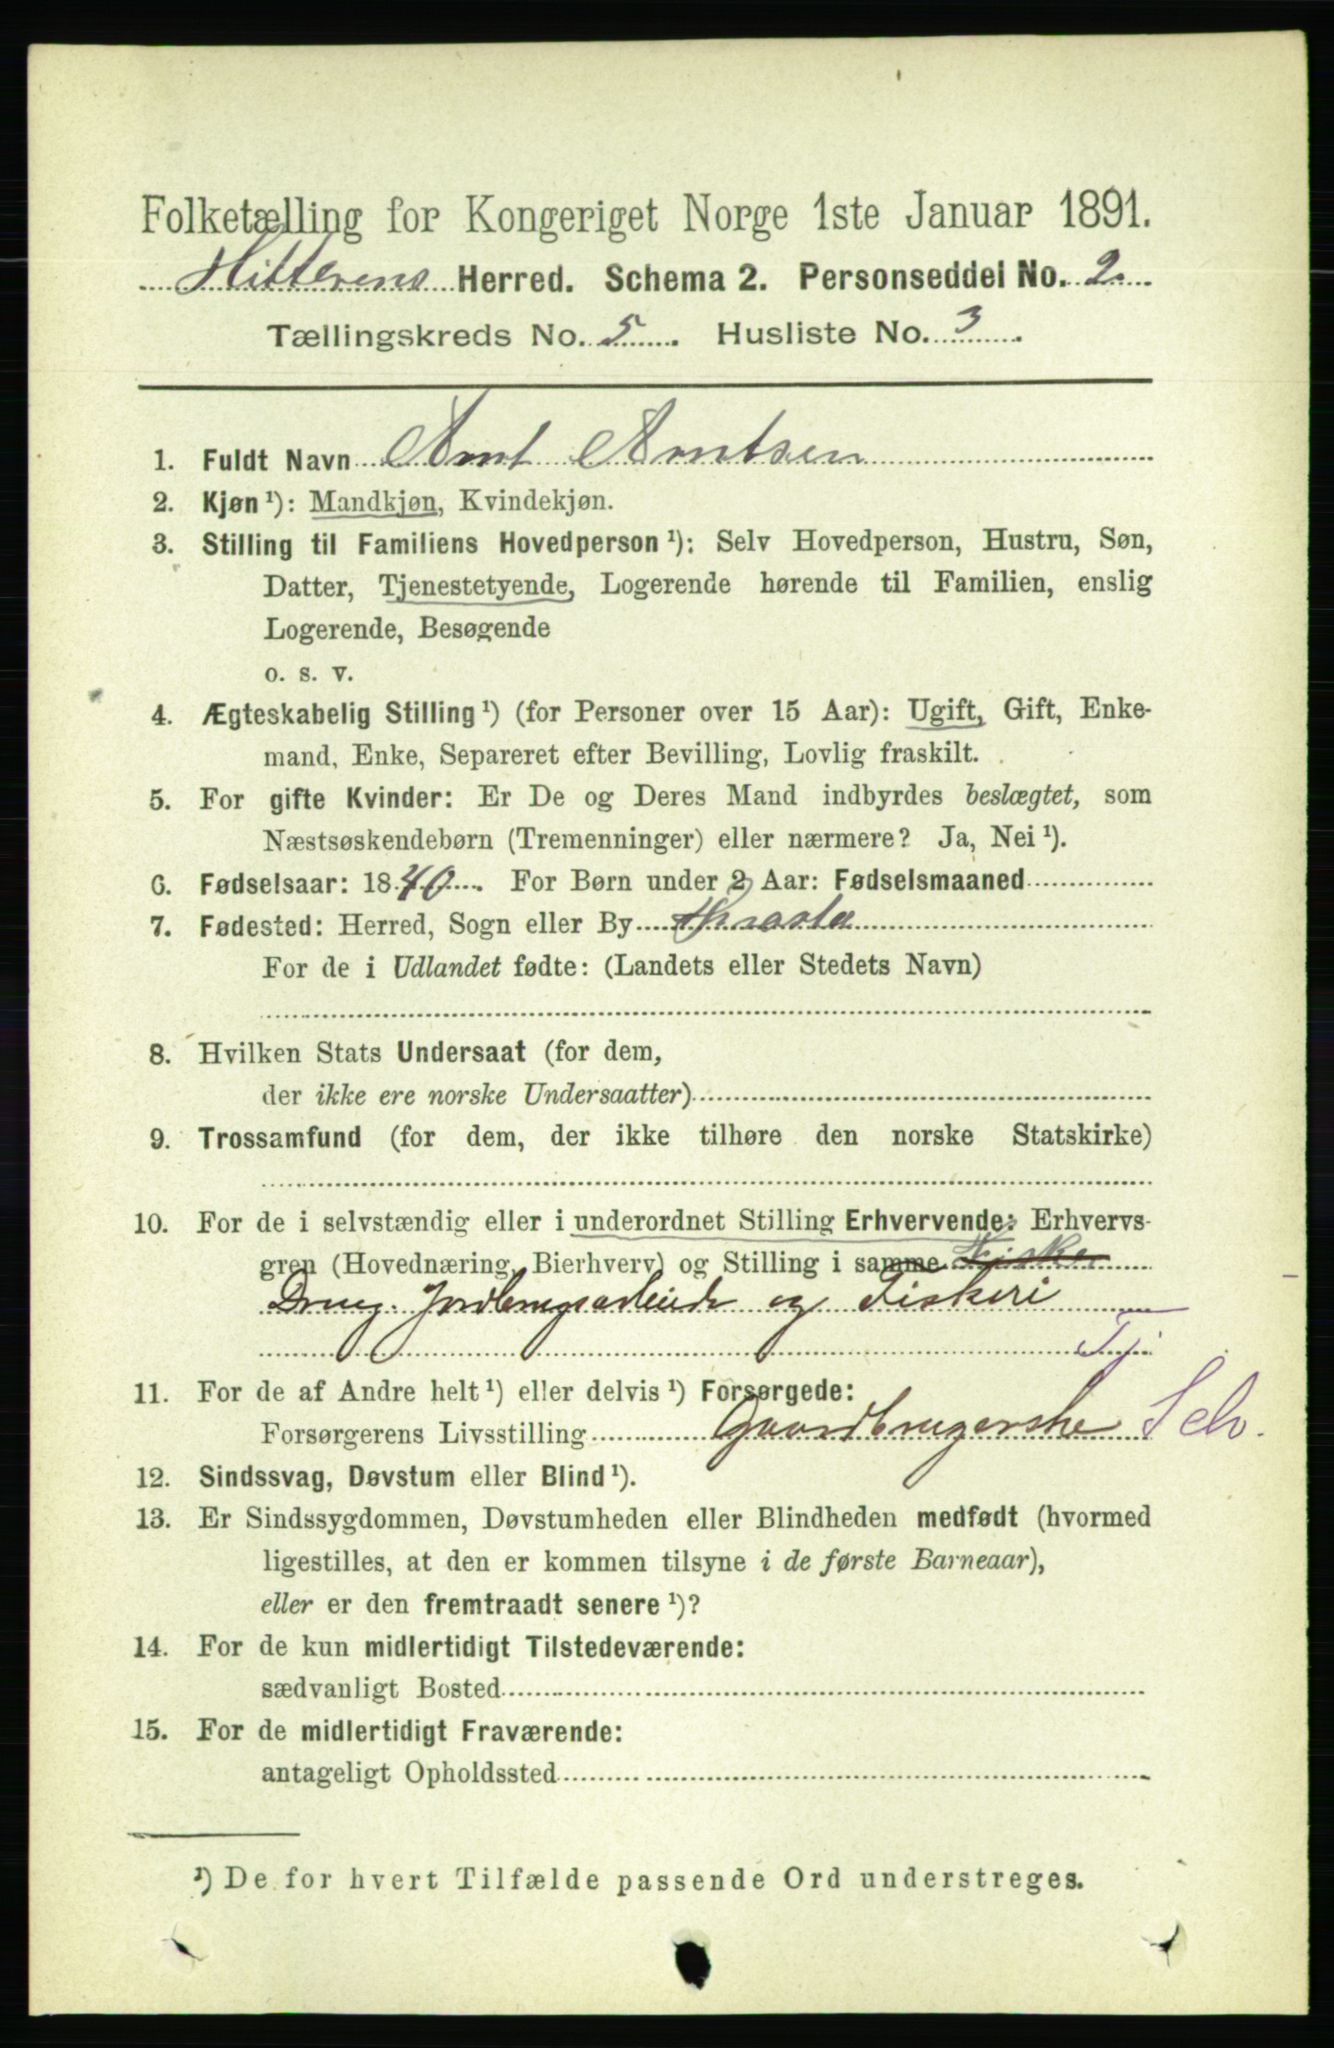 Folketælling for Kongeriget Norge 1ste Januar 1891.
Hitterens Herred. Schema 2. Personseddel No. 2.
Tællingskreds No. 5. Husliste No. 3.
1. Fuldt Navn Arnt Arntsen
2. Kjøn ¹): Mandkjøn, Kvindekjøn.
3. Stilling til Familiens Hovedperson ¹): Selv Hovedperson, Hustru, Søn,
Datter, Tjenestetyende, Logerende hørende til Familien, enslig
Logerende, Besøgende
o. s. v.
4. Ægteskabelig Stilling ¹) (for Personer over 15 Aar): Ugift, Gift, Enke-
mand, Enke, Separeret efter Bevilling, Lovlig fraskilt.
5. For gifte Kvinder: Er De og Deres Mand indbyrdes beslægtet, som
Næstsøskendebørn (Tremenninger) eller nærmere? Ja, Nei ¹).
6. Fødselsaar: 1840. For Børn under 2 Aar: Fødselsmaaned
7. Fødested: Herred, Sogn eller By
For de i Udlandet fødte: (Landets eller Stedets Navn)
8. Hvilken Stats Undersaat (for dem,
der ikke ere norske Undersaatter)
9. Trossamfund (for dem, der ikke tilhøre den norske Statskirke)
10. For de i selvstændig eller i underordnet Stilling Erhvervende: Erhvervs-
gren (Hovednæring, Bierhverv) og Stilling i samme Fisker
Dreng. Jordbrugsarbeide og Fiskeri
Tj.
11. For de af Andre helt ¹) eller delvis ¹) Forsørgede:
Forsørgerens Livsstilling Gaardbrugerske Selv.
12. Sindssvag, Døvstum eller Blind ¹).
13. Er Sindssygdommen, Døvstumheden eller Blindheden medfødt (hvormed
ligestilles, at den er kommen tilsyne i de første Barneaar),
eller er den fremtraadt senere ¹)?
14. For de kun midlertidigt Tilstedeværende:
sædvanligt Bosted
15. For de midlertidigt Fraværende:
antageligt Opholdssted
¹) De for hvert Tilfælde passende Ord understreges.